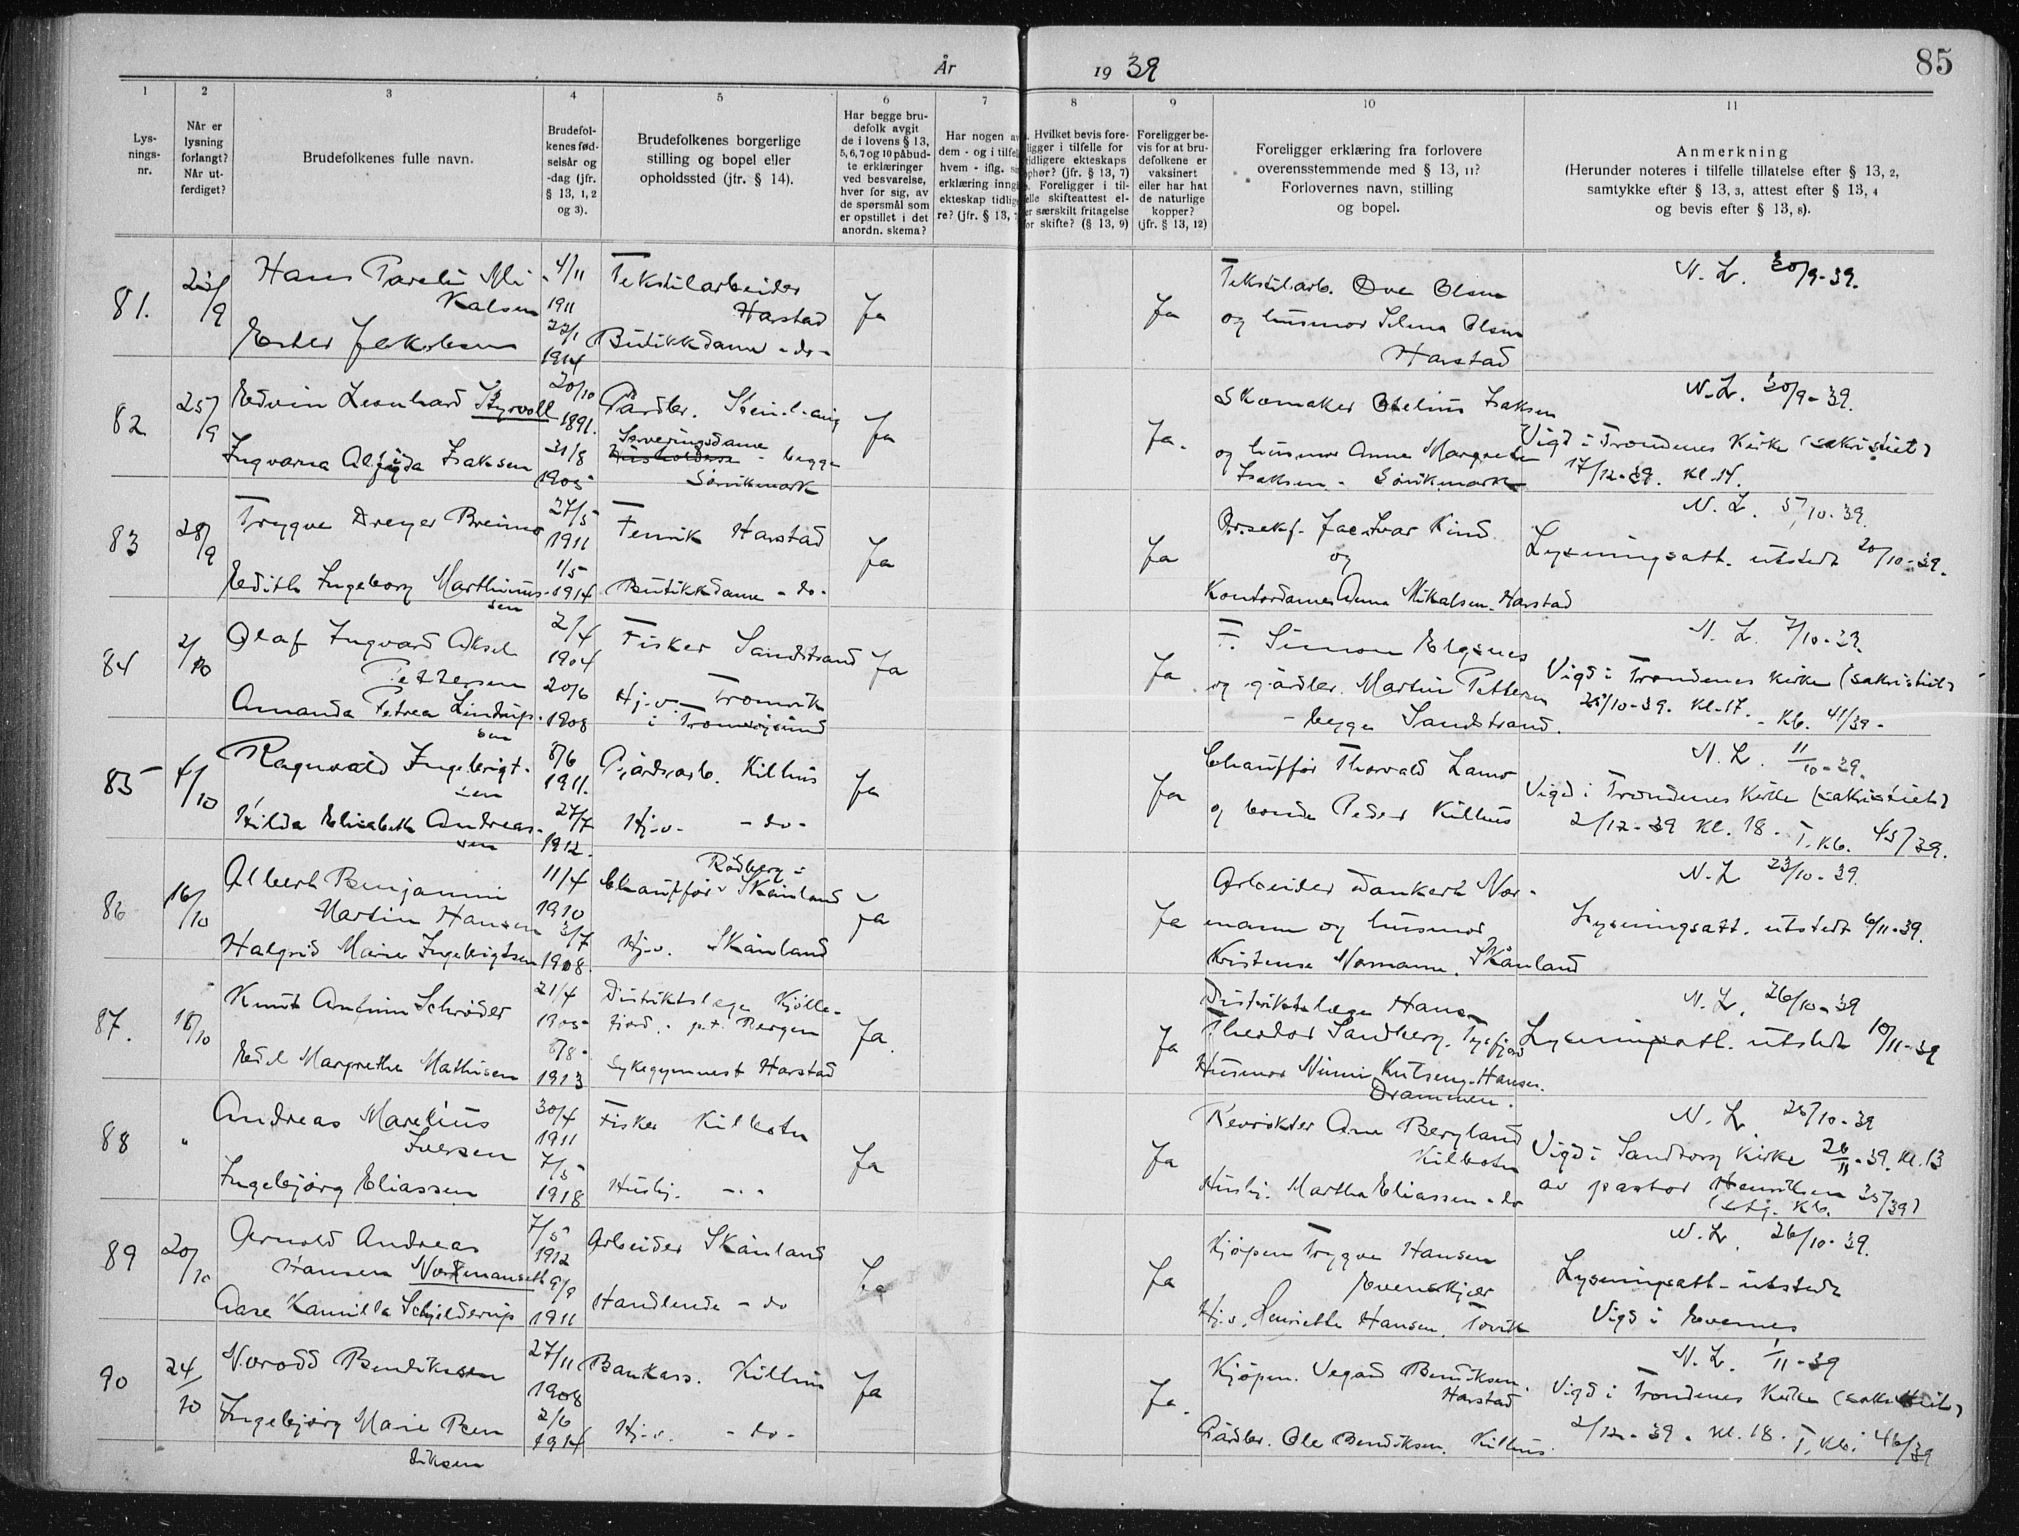 År 1939
85
1
2
3
4
5
6
7
8
9
10
11
Lys-
nings-
nr.
Når er
lysning
forlangt?
Når ut-
ferdiget?
Brudefolkenes fulle navn.
Brudefol-
kenes fød-
selsår og
-dag (jfr.
§ 13, 1, 2
og 3).
Brudefolkenes borgerlige
stilling og bopel eller
opholdssted (jfr. § 14).
Har begge bru-
defolk avgit
de i lovens § 13,
5, 6, 7 og 10 påbud-
te erklæringer
ved besvarelse,
hver for sig, av
de spørsmål som
er opstillet i det
anordn. skema?
Har nogen av
dem - og i tilfelle
hvem - iflg.
erklæring inngå
ekteskap tidlige
re? (jfr. § 13,
Hvilket bevis fore-
ligger i tilfelle for
tidligere ekteskaps
ophør? (jfr. § 13, 7)
Foreligger i til-
felle skifteattest el-
er særskilt fritagelse
for skifte? (§ 13, 9)
Foreligger be-
vis for at bru-
defolkene er
vaksinert
eller har hat
de naturlige
kopper?
(jfr. § 13, 12)
Foreligger erklæring fra forlovere
overensstemmende med § 13, 11?
Forlovernes navn, stilling
og bopel.
Anmerkning
(Herunder noteres i tilfelle tillatelse efter § 13, 2,
samtykke efter § 13, 3, attest efter § 13, 4
og bevis efter § 13, 8).
81.
23/9
Hans Pareli Mi
kalsen
4/11
1911
Tekstilarbeider
Harstad
Ja
Ja
Tekstilarb. Ove Olsen
og husmor Selma Olsen
Harstad
N. L. 30/9-39.
Ester Jakobsen
22/1
1914
Butikkdame - do -
82
25/9
Edvin Leonhard Styrvoll
20/10
1891.
Gårdbr.
Ja
Ja.
Skomaker Otelius Isaksen
og husmor Anna Margrete
Isaksen - Sørvikmark
N. L. 30/9-39.
Vigd i Trondenes Kirke (sakristiet)
17/12-39. Kl. 14.
Ingvarna Alfida Isaksen
31/8
1905
Serveringsdame
- begge
Sørvikmark
83
28/9
Trygve Dreyer Breimo
27/5
1911
Fenrik Harstad
Ja
Ja
Ivar Kind
og
Kontordame Anna Mikalsen. Harstad
N. L. 5/10-39.
Lysningsatt. utstedt 20/10-39.
Edith Ingeborg Marthinus-
sen
1/5
1914
Butikkdame - do -
84
2/10
Olaf Ingvard Aksel
Pettersen
2/4
1904
Fisker Sandstrand
Ja
Ja
F. Simon Elgsnes
og gårdbr. Martin Pettersen
- begge Sandstrand.
N. L. 7/10-39
Vigd i Trondenes kirke (sakristiet)
28/10-39. Kl. 17. - Kb. 41/39 -
Amanda Petrea Lindrup-
sen
20/6
1908
Hj.v. Tromvik
i Tromsøysund
85
4/10
Ragnvald Ingebrigt-
sen
8/6
1911.
Gårdsarb. Kilhus
Ja
Ja
Chauffør Thorvald
og bonde Peder Kilhus
N. L. 11/10-39.
Vigd i Trondenes Kirke (sakristiet)
2/12-39 Kl. 18. T. Kb. 45/39.
Hilda Elisabeth Andreas-
sen
27/7
1912.
Hj.v. - do -
86
16/10
Albert Benjamin
Martin Hansen
11/4
1910
Rødberg i
Chauffør Skånland
Ja
Ja
Arbeider Dankert Nor-
mann og husmor
Kristense Normann. Skånland
N. L. 23/10-39.
Lysningsatt. utstedt 6/11-39.
Halgrid Marie Ingebrigtsen
3/7
1908.
Hj.v. Skånland
87.
18/10
Knut Schrøder
21/4
1905
Distriktslege Kjølle-
fjord. - p.t. Bergen
Ja.
Ja
Distriktslege Hans
Theodor Sandberg. Tysfjord
Husmor Hansen.
Drammen.
N. L. 26/10-39
Lysningsatt. utstedt 10/11-39
Edel Margrethe Mathisen
8/8-
1913
Sykegymnast Harstad
88
"
Andreas Marelius
Iversen
30/4
1911
Fisker Kilbotn
Ja
Ja
Røvrøkter Arne Bergland
Kilbotn
Husbj. Martha Eliassen - do
N. L. 26/10-39
Vigd i Sandtorg kirke 26/11-39. Kl. 13
av pastor Henriksen
(stj. Kb. 35/39)
Ingebjørg Eliassen
7/5
1918
Husbj. - " -
89
20/10
Arnold Andreas
Hansen Nordmanseth
7/5
1912
Arbeider Skånland
Ja
Ja
Kjøpm Trygve Hansen
Evenskjer
Hj.v. Henriette Hansen. Tovik
N. L. 26/10-39.
Lysningsatt. utstedt
Vigd i Evenes
Aase Kamilla Schjelderup
9/9
1911
Handlende - do
90
24/10
Norodd Bendiksen
27/11
1908
Bankass. Kilhus
Ja
Ja.
Kjøpm. Vegard Bendiksen.
Harstad
Gårdbr. Ole Bendiksen. Kilhus.
N. L. 1/11-39
Vigd i Trondenes Kirke (sakristiet)
2/12-39. Kl. 18. T. Kb. 46/39
Ingebjørg Marie Ben
diksen
2/6
1914
Hj.v. - do -